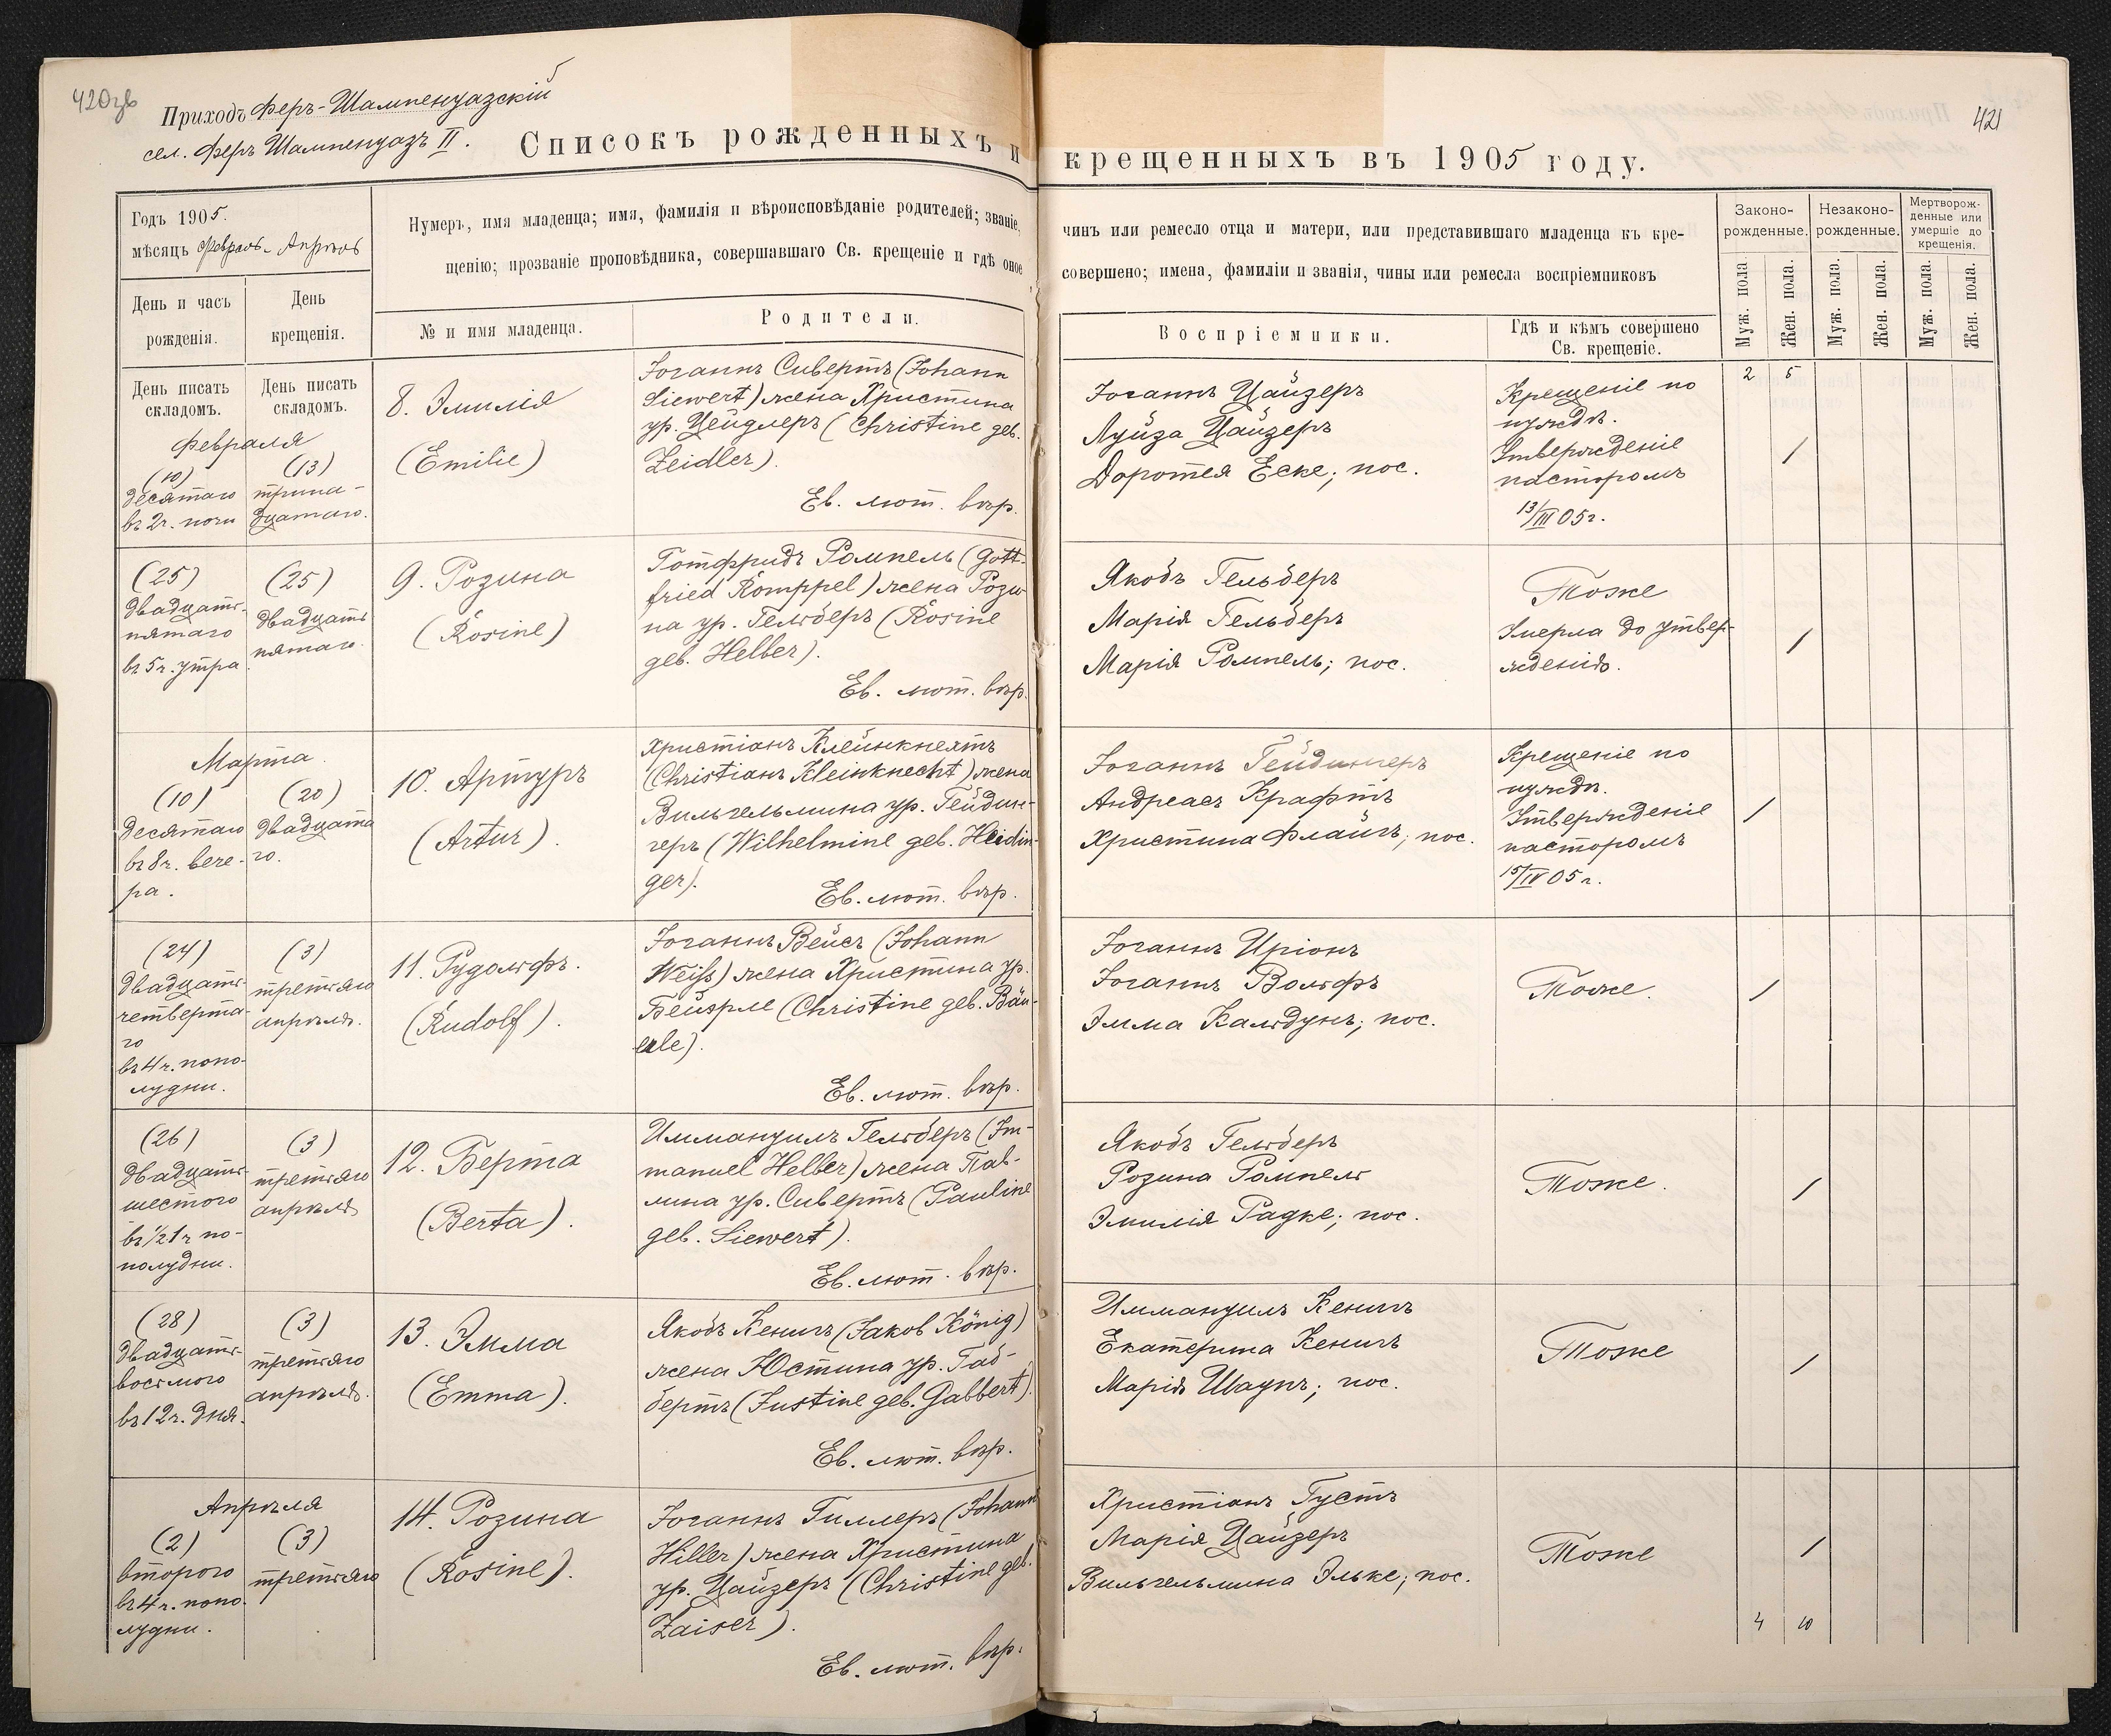 420зв
Приходъ Феръ-Шампенуазскій
сел. Феръ Шампенуазъ II.
421
Списокъ рожденныхъ и крещенныхъ въ 1905 году.
Годъ 1905.
мѣсяцъ Февраль-Апрѣль
Нумеръ, имя младенца; имя, фамилія и вѣроисповѣданіе родителей; званіе, чинъ или ремесло отца и матери, или представившаго младенца къ кре-
щенію; прозваніе проповѣдника, совершавшаго Св. крещеніе и гдѣ оное совершено; имена, фамиліи и званія, чины или ремесла воспріемниковъ
Законо-
рожденные.
Незаконо-
рожденные.
Мертворож-
денные или
умершіе до
крещенія.
День и часъ
рожденія.
День
крещенія.
№ и имя младенца.
Родители.
Воспріемники.
Гдѣ и кѣмъ совершено
Св. крещеніе.
Муж. пола.
Жен. пола.
Муж. пола.
Жен. пола.
Муж. пола.
Жен. пола.
День писать
складомъ.
День писать
складомъ.
2 5
Февраля
(10)
десятаго
въ 2ч. ночи
(13)
трина-
дцатаго.
8. Эмилія
(Emilie)
Іоганнъ Сивертъ (Johann
Siewert) жена Христина
ур. Цейдлеръ (Christine geb.
Zeidler).
Ев. лют. вѣр.
Іоганнъ Цайзеръ
Луиза Цайзеръ
Доротея Еске; пос.
Крещеніе по
нуждѣ.
Утвержденіе
пасторомъ
13/III 05г.
/
(25)
двадцать-
пятаго
въ 5ч. утра
(25)
двадцать
пятаго.
9. Розина
(Rosine)
Готфридъ Ромпель (Gott-
fried Romppel) жена Рози-
на ур. Гельберъ (Rosine
geb. Helber).
Ев. лют. вѣр.
Якобъ Гельберъ
Марія Гельберъ
Марія Ромпель; пос.
Тоже
Умерла до утвер-
жденія.
/
Марта.
(10)
десятаго
въ 8ч. вече-
ра.
(20)
двадцата
го.
10. Артуръ
(Artur).
Христіанъ Клейнкнехтъ
(Christian Kleinknecht) жена
Вильгельмина ур. Гейдин-
геръ (Wilhelmine geb. Heidin-
ger).
Ев. лют. вѣр.
Іоганнъ Гейдингеръ
Андреасъ Крафтъ
Христина Флайгъ; пос.
Крещеніе по
нуждѣ.
Утвержденіе
пасторомъ
15/IV 05г.
/
(24)
двадцать-
четверта-
го
въ 4ч. попо-
лудни.
(3)
третьяго
апрѣля.
11. Рудольфъ.
(Rudolf).
Іоганнъ Вейсъ (Johann
Weiß) жена Христина ур.
Бейэрле (Christine geb. Bäu-
erle).
Ев. лют. вѣр.
Іоганнъ Иріонъ
Іоганнъ Вольфъ
Эмма Кальдунъ; пос.
Тоже.
/
(26)
двадцать-
шестого
въ 1/2 1ч по-
полудни.
(3)
третьяго
апрѣля
12. Берта
(Berta).
Иммануилъ Гельберъ (Im-
manuel Helber) жена Пав-
лина ур. Сивертъ (Pauline
geb. Siewert).
Ев. лют. вѣр.
Якобъ Гельберъ
Розина Ромпель
Эмилія Радке; пос.
Тоже.
/
(28)
двадцать-
восьмого
въ 12ч. дня.
(3)
третьяго
апрѣля.
13. Эмма
(Emma).
Якобъ Кенигъ (Jakob König)
жена Юстина ур. Габ-
бертъ (Justine geb. Gabbert).
Ев. лют. вѣр.
Иммануилъ Кенигъ
Екатерина Кенигъ
Марія Шаупъ; пос.
Тоже
/
Апрѣля
(2)
второго
въ 4ч. попо-
лудни.
(3)
третьяго
14. Розина
(Rosine).
Іоганнъ Гиллеръ (Johann
Hiller) жена Христина
ур. Цайзеръ (Christine geb.
Zaiser).
Ев. лют. вѣр.
Христіанъ Густъ
Марія Цайзеръ
Вильгельмина Эльке; пос.
Тоже
/
4 10